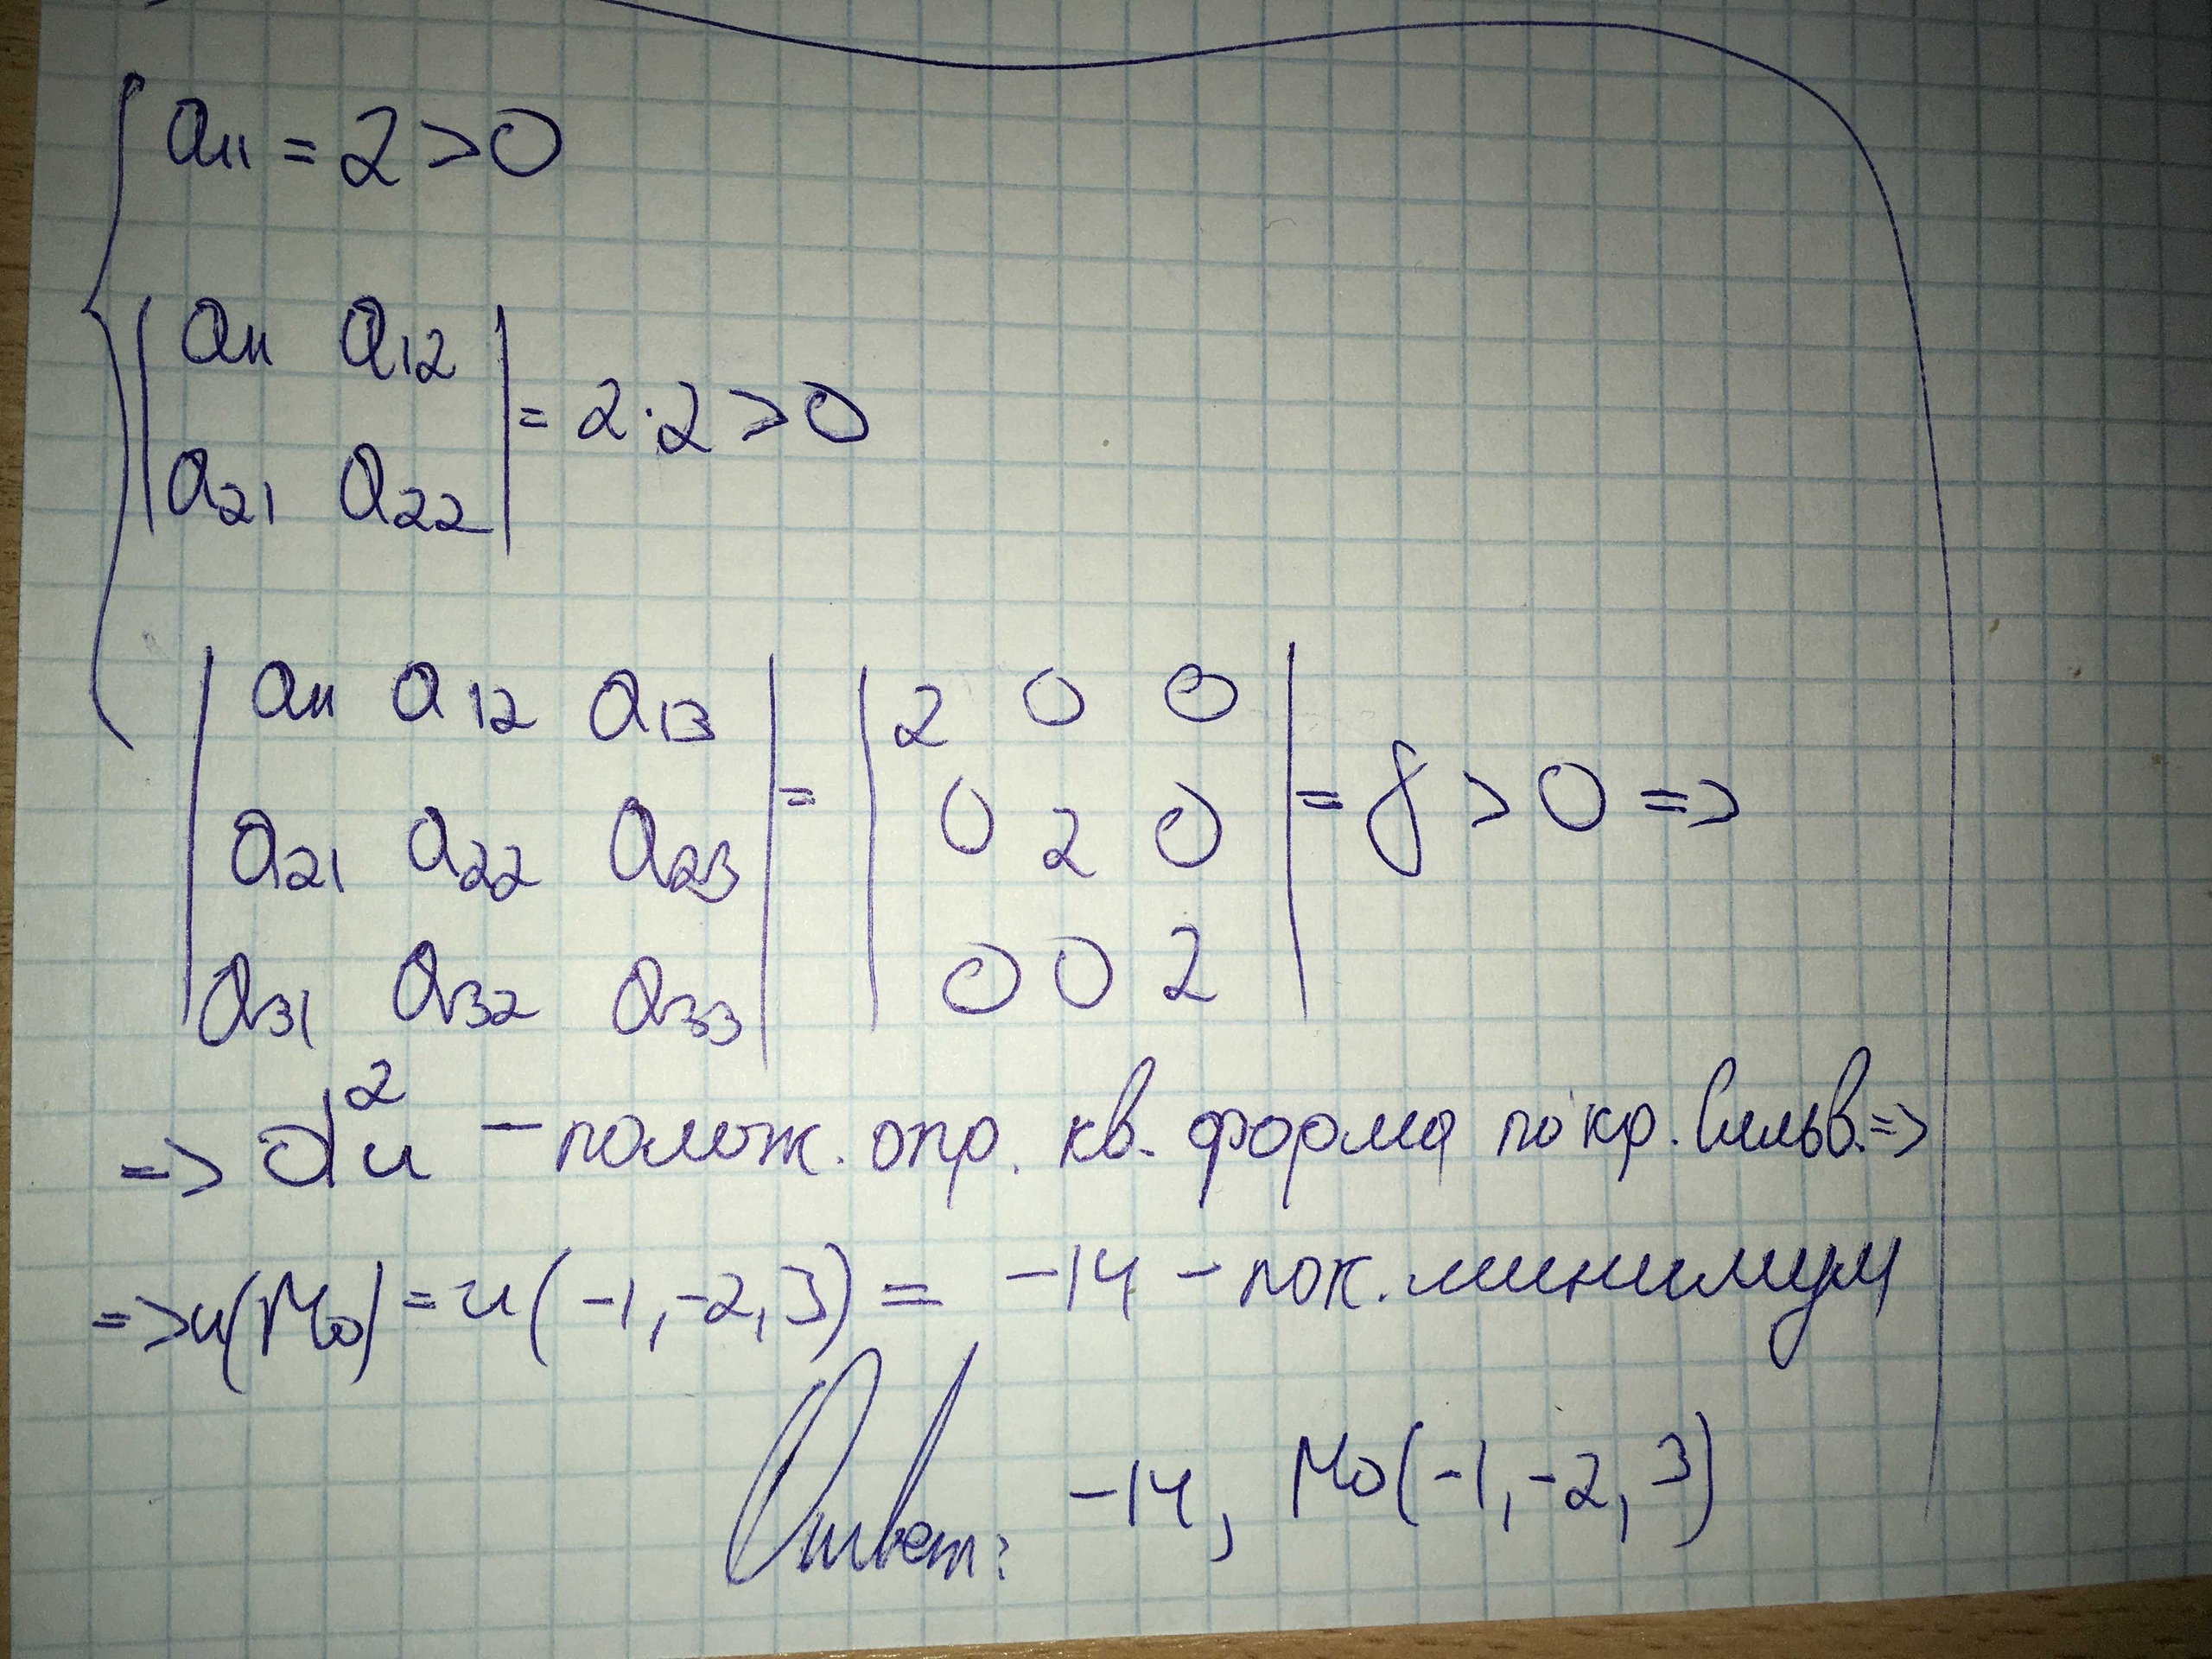 a₁₁ = 2 > 0
| a₁₁ a₁₂ |
| a₂₁ a₂₂ | = 2·2 > 0
| a₁₁ a₁₂ a₁₃ | | 2 0 0 |
| a₂₁ a₂₂ a₂₃ | = | 0 2 0 | = 8 > 0 =>
| a₃₁ a₃₂ a₃₃ | | 0 0 2 |
=> d²u – полож. опр. кв. форма по кр. Сильв. =>
=> u(M₀) = u(-1, -2, 3) = -14 – лок. минимум
Ответ: -14, M₀(-1, -2, 3)